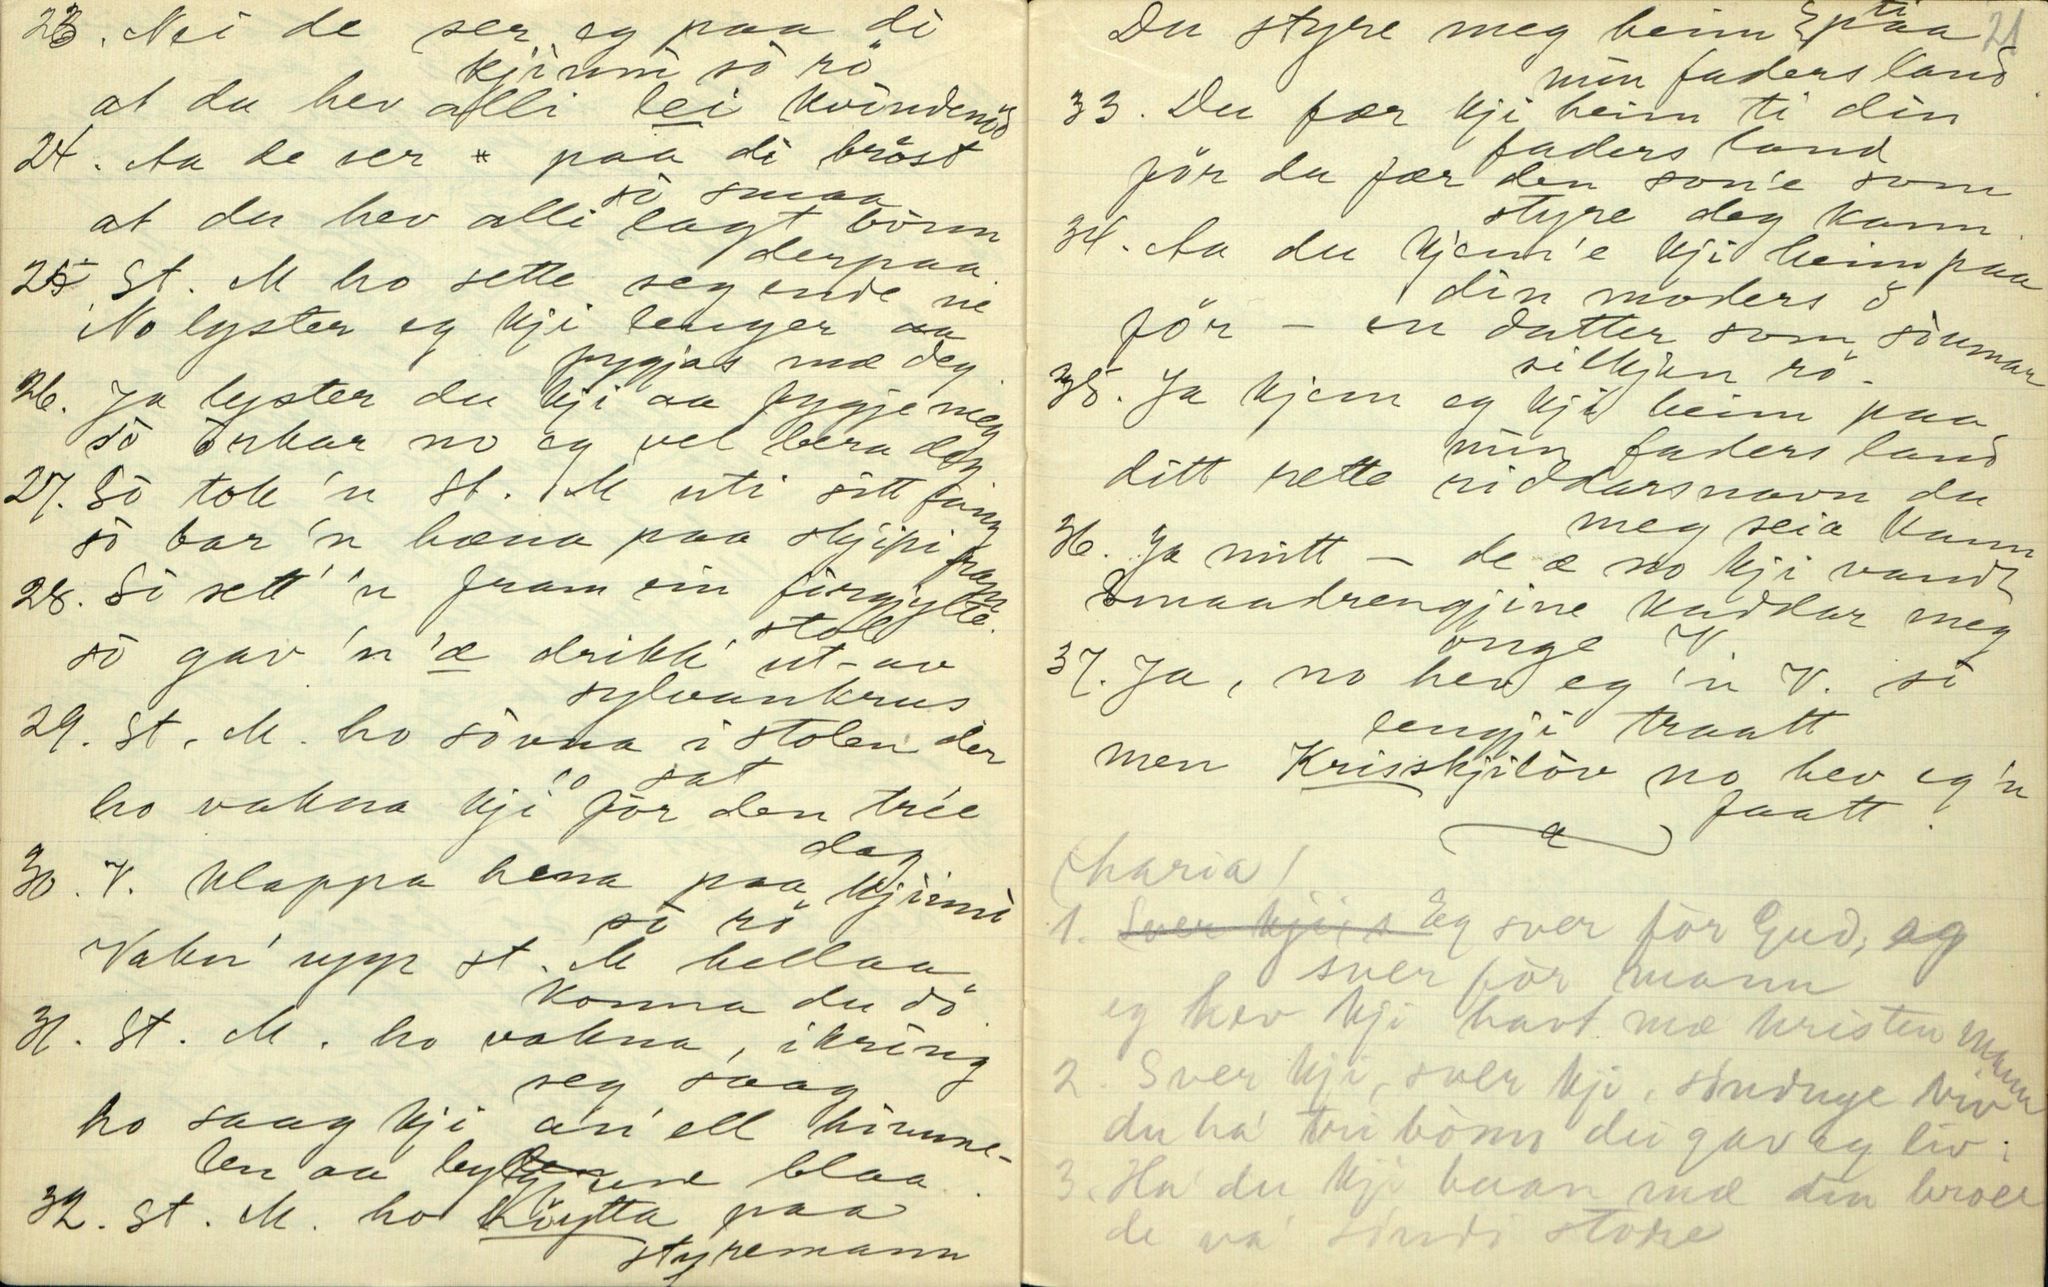 23. Nei de ser eg paa di
kjinni so rö
at du hev alli lei kvindenöd
24. Aa de ser * paa di bröst
so smaa
at du hev alli lagt bönn
derpaa
25 St. M ho sette seg ende ne
No lyster eg kji lenger aa
fygjas mæ deg.
26. Ja lyster du kji aa fygje meg
so orkar no eg vel bera deg
27. So tok 'n St. M uti sitt fang
so bar 'n hæna paa skjipi fram
28. So sett' 'n fram ein forgyllte
stol
so gav 'n 'æ drikk' ut-av
sylvankrus
29. St. M. ho sovna i stolen der
ho sat
ho vakna kji för den trée
dag
30. V. klappa hena paa kjinni
so rö
Vakn' upp st. M hellaa
konna du dö
31. St. M. ho vakna, ikring
seg saag
ho saag kji an' ell himme-
len aa bylgjune blaa.
32. St. M. ho köytta paa
styremann
21
Du styre meg heim ti
min faders land.
33. Du fær kji heim ti din
faders land
för du fær den son'e som
styre deg kann.
34. Aa du kjem'e kji heim paa
din moders ö
för – en datter som söumar
silkjen rö.
35. Ja kjem eg kji heim paa
min faders land
ditt rette riddarsnavn du
meg seia kann
36. Ja mitt – de æ no kji vandt
Smaadrengjine kaddar meg
onge V
37. Ja, no hev eg 'n V. so
lengji traatt
men Krisskjilöv no hev eg 'n
faatt.
(Maria)
1. Sver kji, s Eg sver för Gud, eg
sver för mann
eg hev kji havt mæ kristen mann
2. Sver kji, sver kji, sönduge viv
du ha' tri bönn du gav eg liv:
3. Ha' du kji baan mæ din broer
de va' söndi store